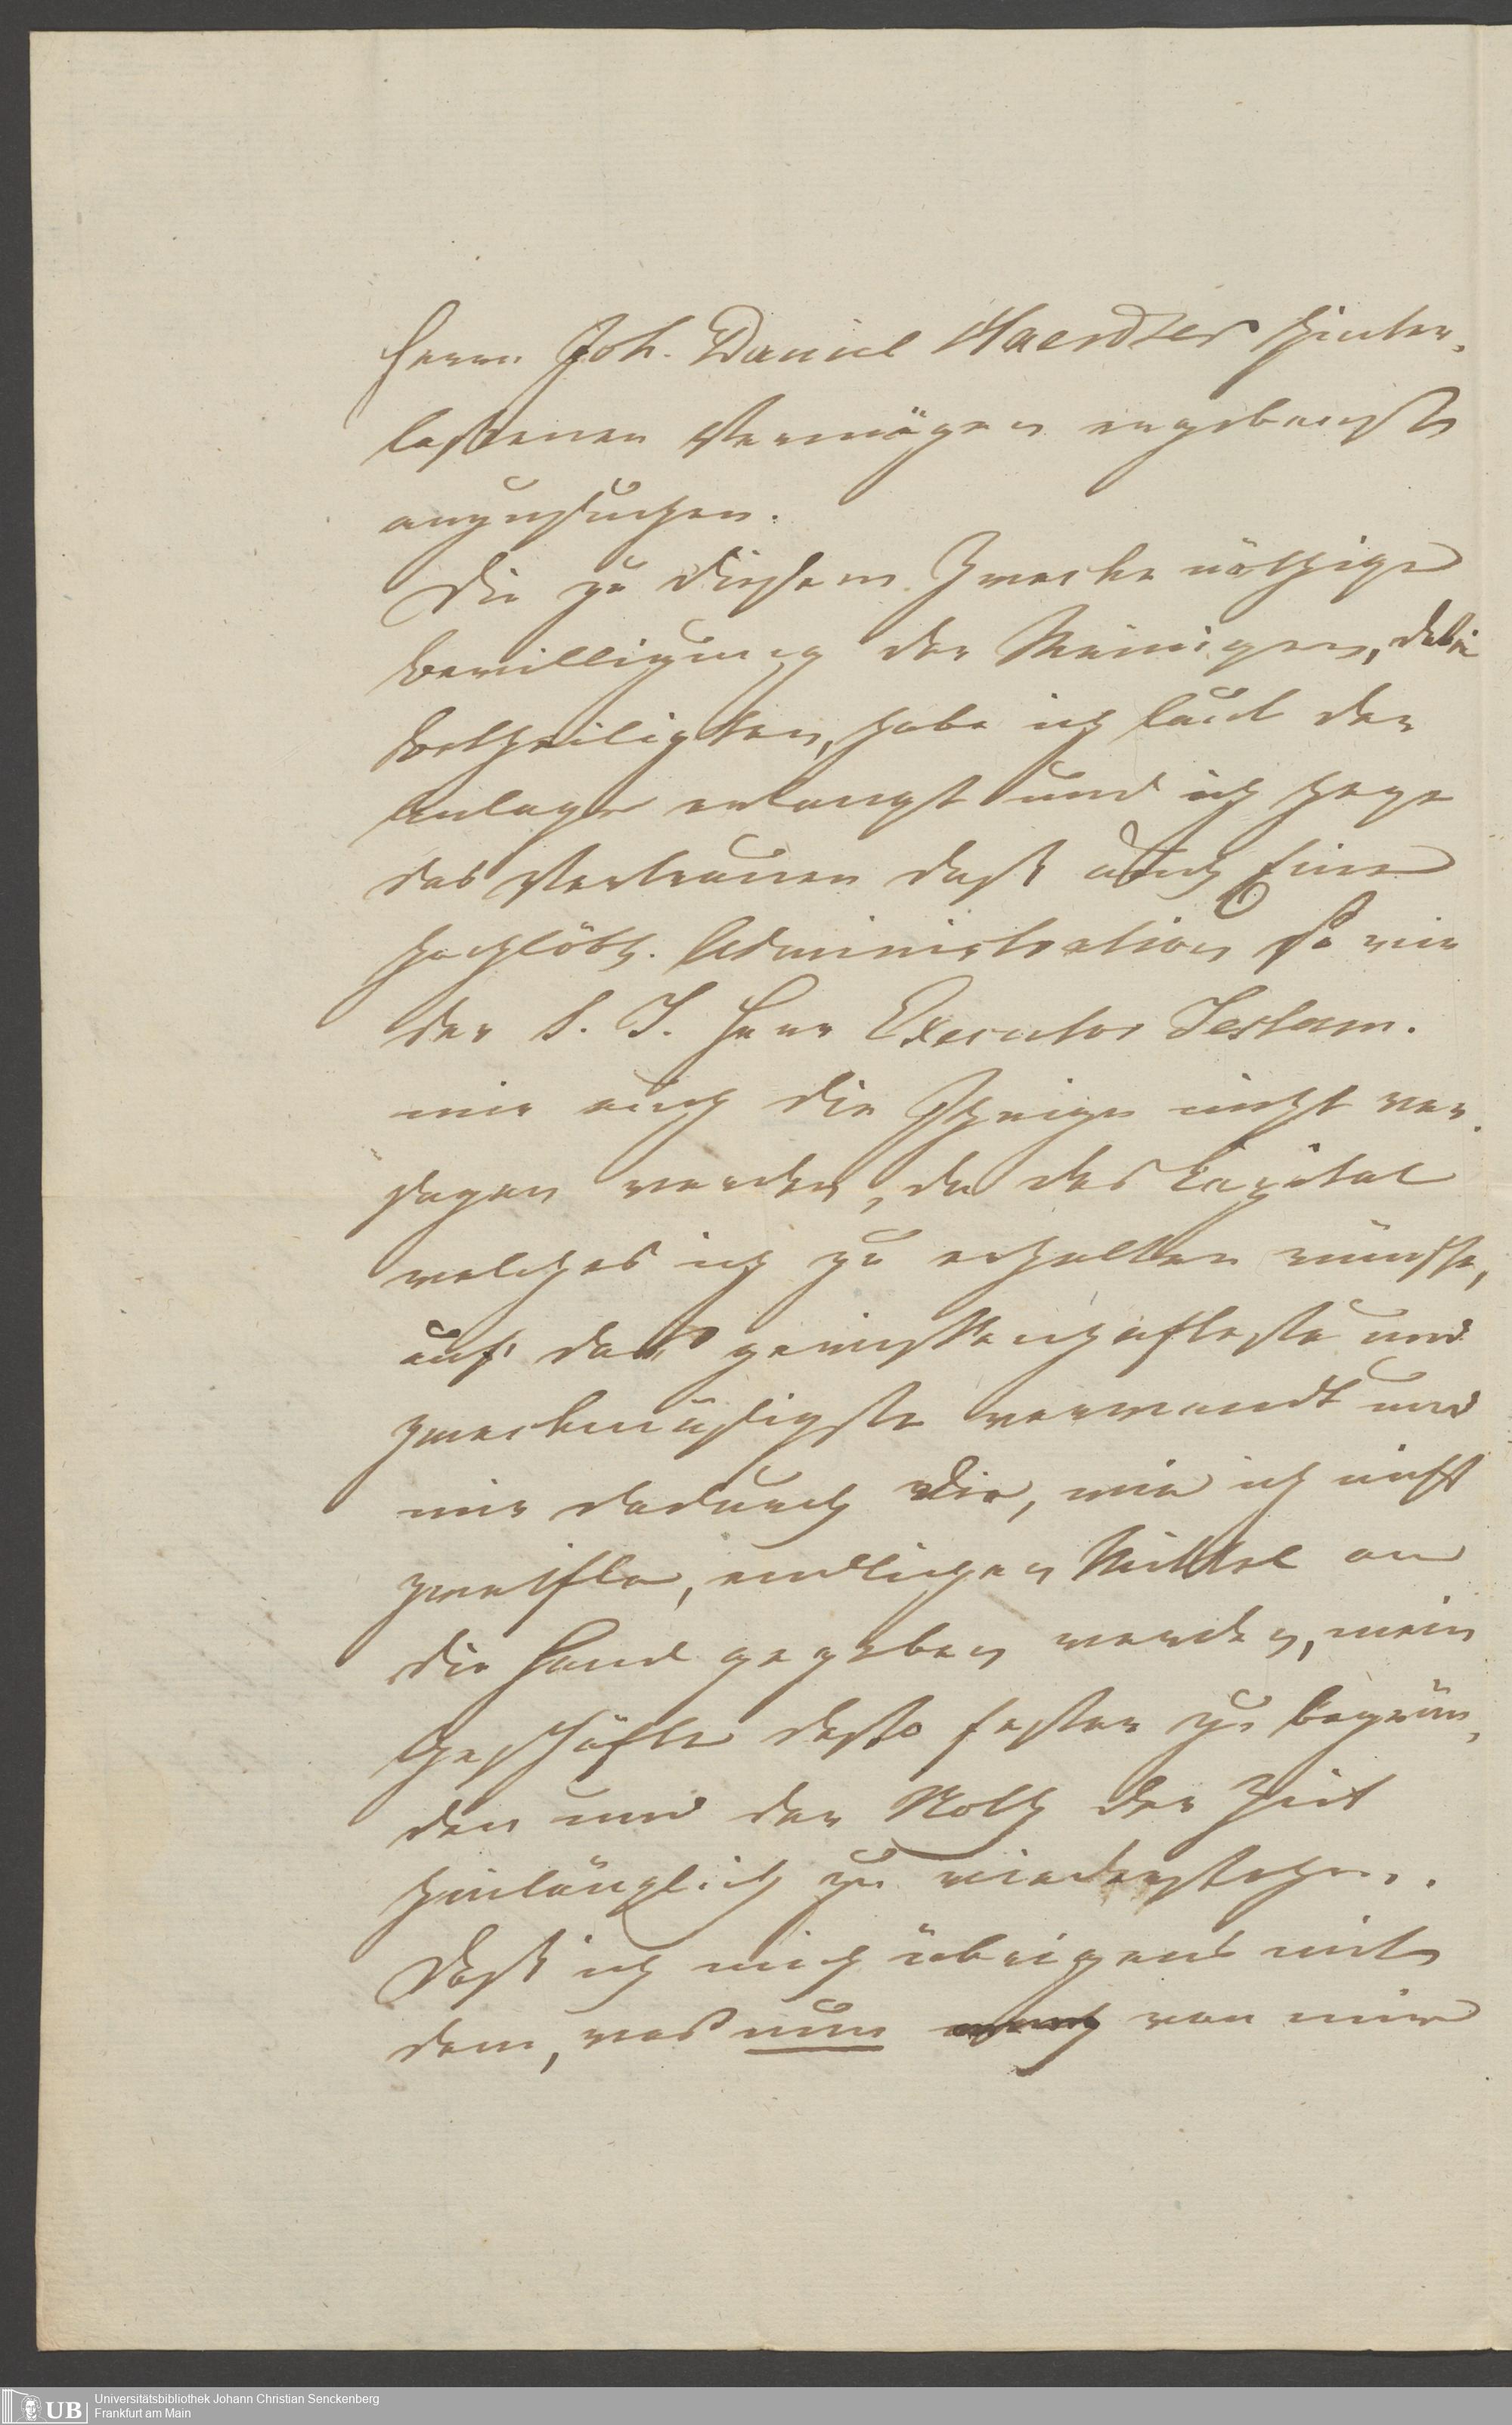 Herrn Joh. Daniel Haerdter hinter-
lassenen Vermögen ergebenst
anzusuchen.
Die zu diesem Zwecke nöthige
Bewilligung der Meinigen, dabei
Betheiligten, habe ich laut der
Anlage erlangt und ich hege
das Vertrauen dass auch Eine
hochlöbl. Administration so wie
der S. T. Herr Executor Testam.
mir auch die Ihrige nicht ver-
sagen werden, da das Capital
welches ich zu erhalten wünsche,
auf das gewissenhafteste und
zweckmäsigste verwandt und
mir dadurch die, wie ich nicht
zweifle, endlichen Mittel an
die Hand gegeben werden, mein
Geschäfte desto fester zu begrün-
den und der Noth der Zeit
hinlänglich zu wiederstehen.
Dass ich mich übrigens mit
dem, was nun von mir
Universitätsbibliothek Johann Christian Senckenberg
Frankfurt am Main
UB